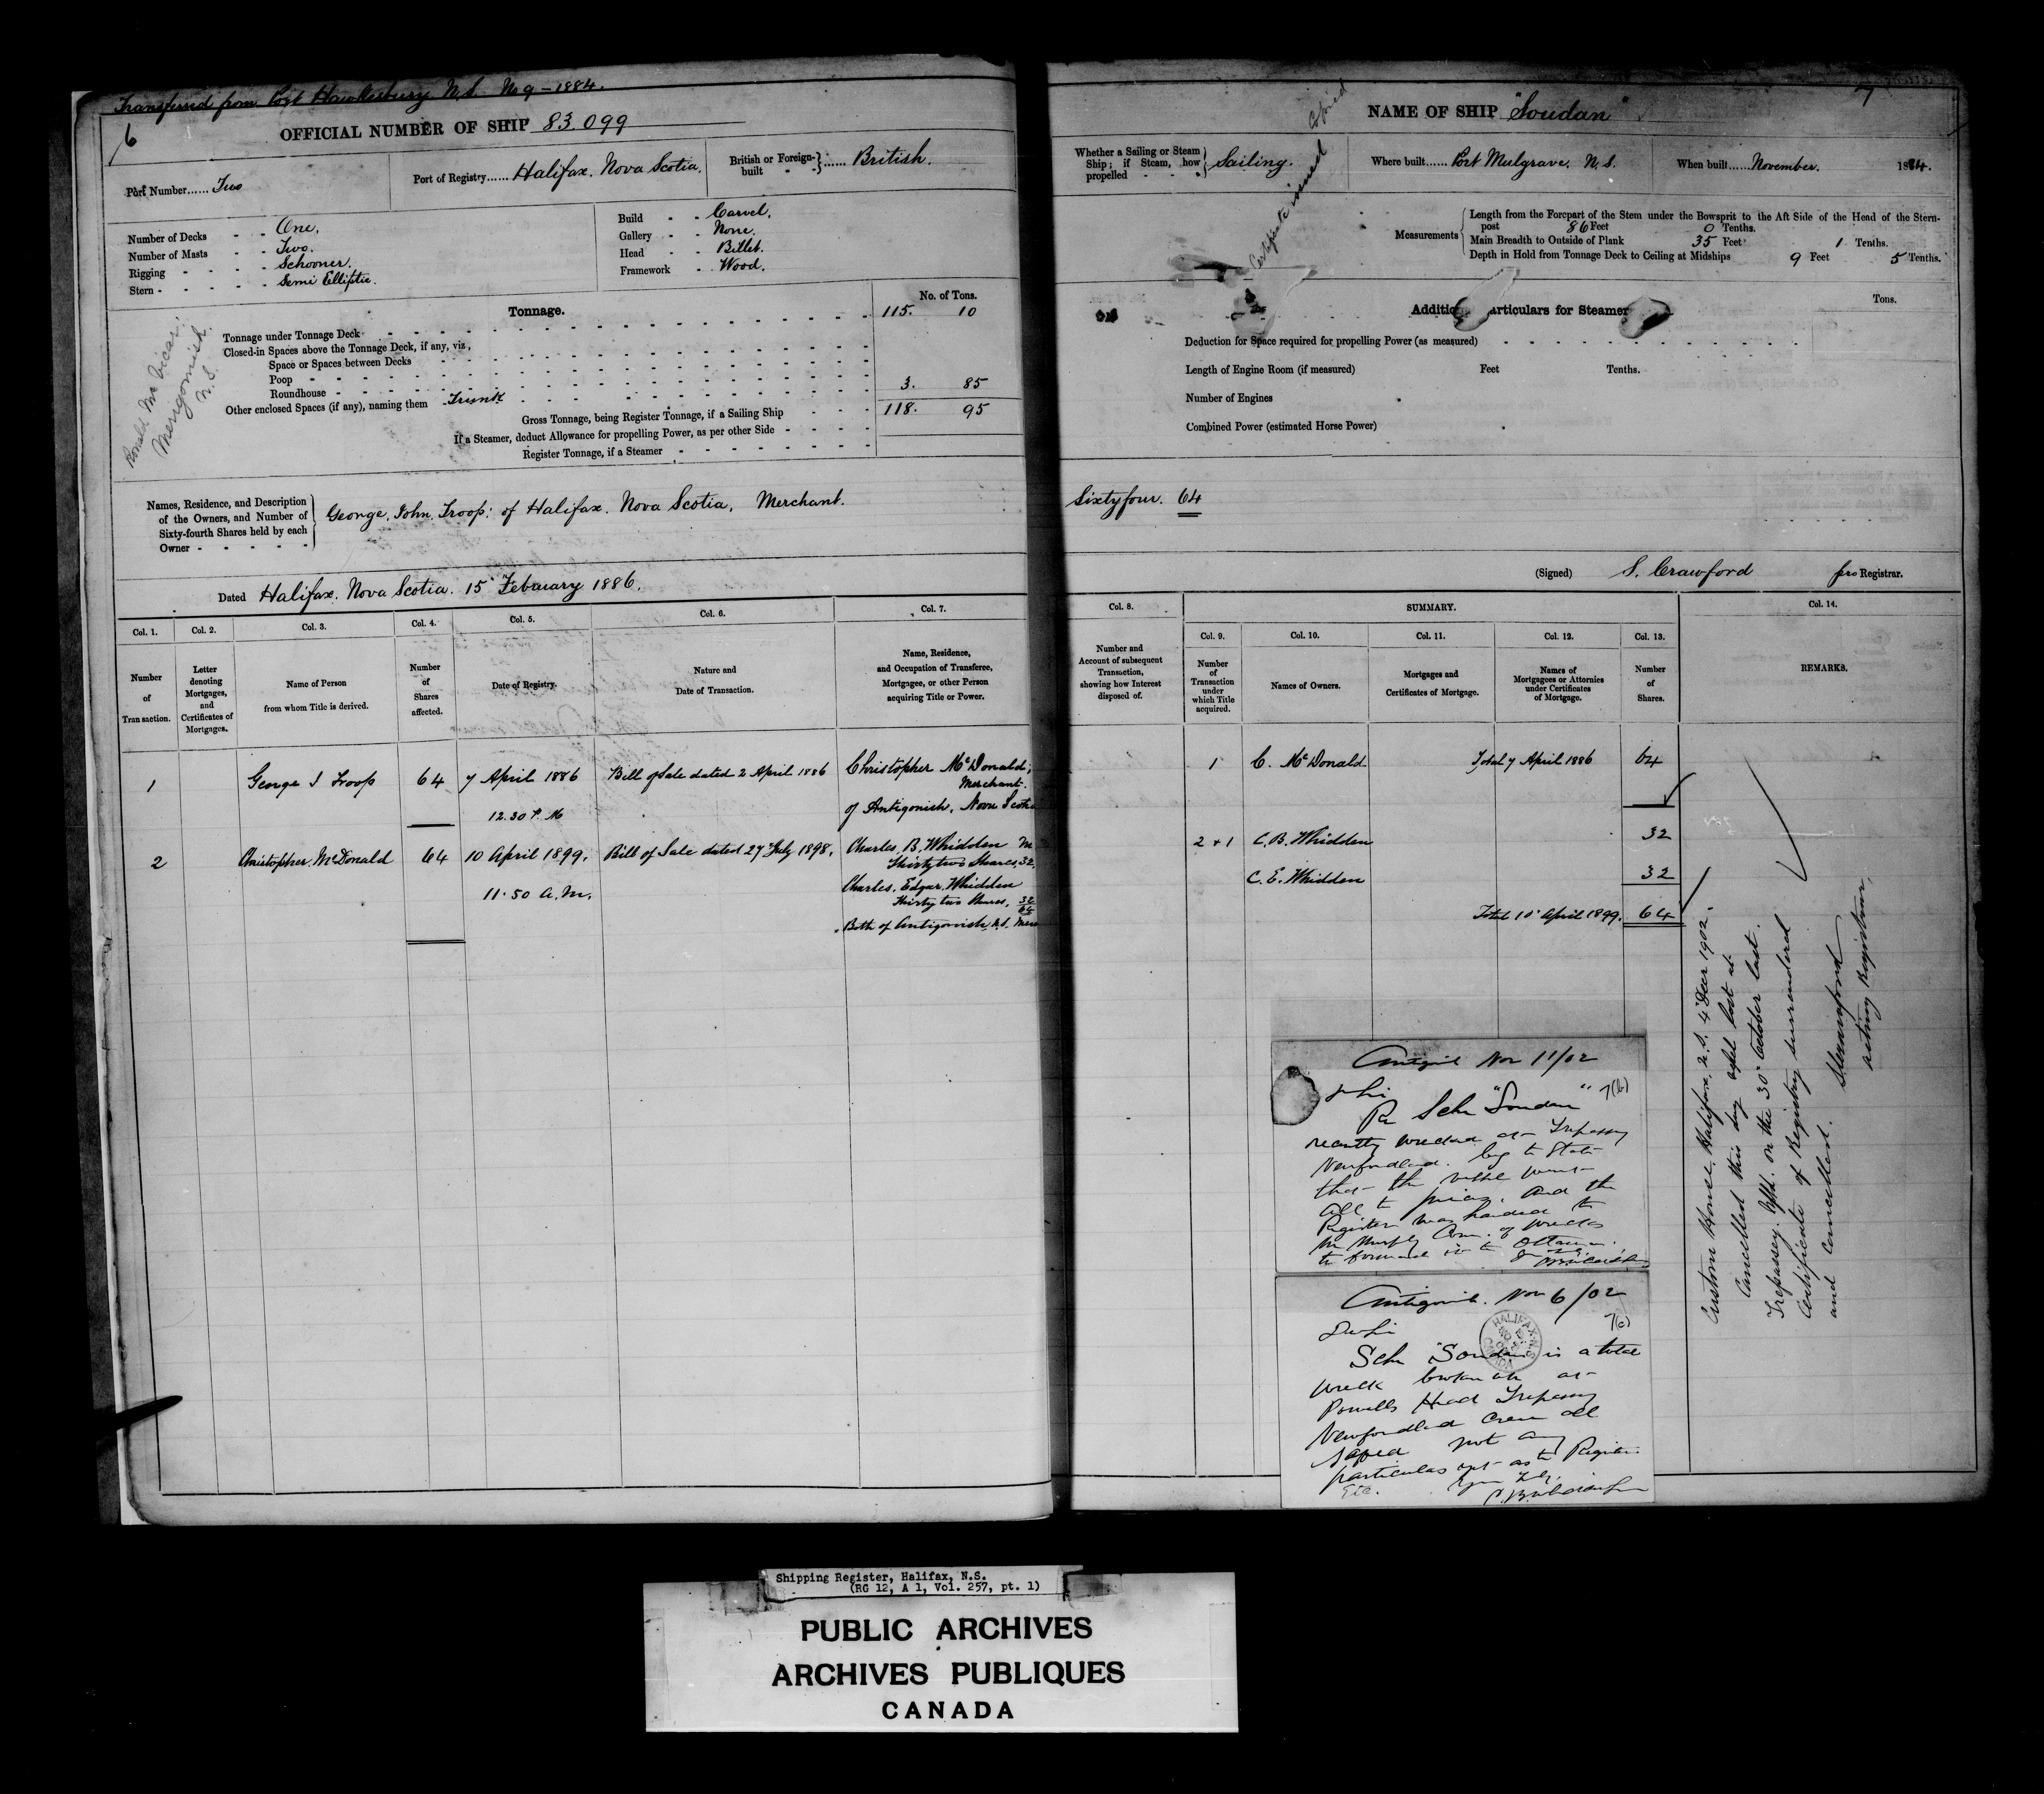 Transferred from Port Hawkesbury N.S. No 9 – 1884.
6
OFFICIAL NUMBER OF SHIP 83.099
Port Number...... Two
Port of Registry...... Halifax. Nova Scotia.
British or Foreign-built ...... British.
Number of Decks - - One.
Number of Masts - - Two.
Rigging - - - - Schooner.
Stern - - - - - Semi Elliptic.
Build - - Carvel.
Gallery - - None.
Head - - Billet.
Framework - Wood.
Tonnage.
No. of Tons.
Tonnage under Tonnage Deck 115. 10
Closed-in Spaces above the Tonnage Deck, if any, viz,
Space or Spaces between Decks
Poop
Roundhouse
Other enclosed Spaces (if any), naming them - Trunk 3. 85
Gross Tonnage, being Register Tonnage, if a Sailing Ship 118. 95
If a Steamer, deduct Allowance for propelling Power, as per other Side
Register Tonnage, if a Steamer
Ronald
Merigomish.
N.S.
Names, Residence, and Description
of the Owners, and Number of
Sixty-fourth Shares held by each
Owner - - - - -
George John Troop: of Halifax. Nova Scotia, Merchant.
Dated Halifax. Nova Scotia. 15 February 1886.
Col. 1. Col. 2. Col. 3. Col. 4. Col. 5. Col. 6. Col. 7.
Number of Transaction.
Letter denoting Mortgages, and Certificates of Mortgages.
Name of Person from whom Title is derived.
Number of Shares affected.
Date of Registry.
Nature and Date of Transaction.
Name, Residence, and Occupation of Transferee, Mortgagee, or other Person acquiring Title or Power.
1 George J Troop 64 7 April 1886 Bill of Sale dated 2 April 1886 Christopher McDonald,
Merchant.
12.30 P.M of Antigonish. Nova Scotia
2 Christopher McDonald 64 10 April 1899. Bill of Sale dated 27 July 1898. Charles. B. Whidden
Thirty two Shares, 32
11.50 a.m. Charles. Edgar. Whidden
Thirty two Shares, 32
64
Both of Antigonish N.S.
7
NAME OF SHIP "Soudan"
Certificate issued Copied
Whether a Sailing or Steam Ship; if Steam, how propelled - - - Sailing.
Where built...... Port Mulgrave. N.S.
When built...... November. 1884.
Measurements
Length from the Forepart of the Stem under the Bowsprit to the Aft Side of the Head of the Stern-
post 86 Feet 0 Tenths.
Main Breadth to Outside of Plank 35 Feet 1 Tenths.
Depth in Hold from Tonnage Deck to Ceiling at Midships 9 Feet 5 Tenths.
Additio articulars for Steamer
Tons.
Deduction for Space required for propelling Power (as measured)
Length of Engine Room (if measured) Feet Tenths.
Number of Engines
Combined Power (estimated Horse Power)
Sixty four. 64
(Signed) S. Crawford pro Registrar.
Col. 8. SUMMARY. Col. 14.
Col. 9. Col. 10. Col. 11. Col. 12. Col. 13.
Number and Account of subsequent Transaction, showing how Interest disposed of.
Number of Transaction under which Title acquired.
Names of Owners.
Mortgages and Certificates of Mortgage.
Names of Mortgagees or Attorneys under Certificates of Mortgage.
Number of Shares.
REMARKS.
1 C. McDonald Total 7 April 1886 64
2 + 1 C. B. Whidden 32
C. E. Whidden 32
Total 10 April 1899. 64
Custom House, Halifax, N.S. 4 Decr 1902.
Cancelled this day vessel lost at
Trepassey. Nfld. on the 30 October last.
Certificate of Registry surrendered
and Cancelled.
acting Registrar.
Antigonish Nov 11/02
7(b)
Dr Sir
Re Schr "Soudan"
recently wrecked at Trepassey
Newfoundland. beg to state
that the vessel went
all to pieces. and the
Register was handed to
Mr Murphy Com. of Wrecks
to forward it to Ottawa.
Antigonish. Nov 6/02
7(c)
HALIFAX N.S.
CANADA
Dr Sir
Schr "Soudan" is a total
wreck broken up at
Powells Head Trepassey
Newfoundland Crew all
saved not any
particulars yet as to Register
Etc.
Shipping Register, Halifax, N.S.
(RG 12, A 1, Vol. 257, pt. 1)
PUBLIC ARCHIVES
ARCHIVES PUBLIQUES
CANADA